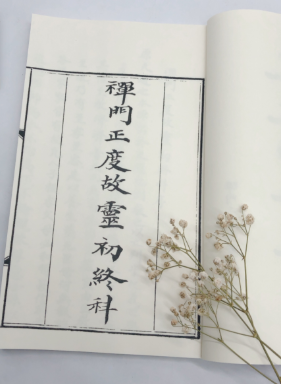 禪門正度故靈初終科